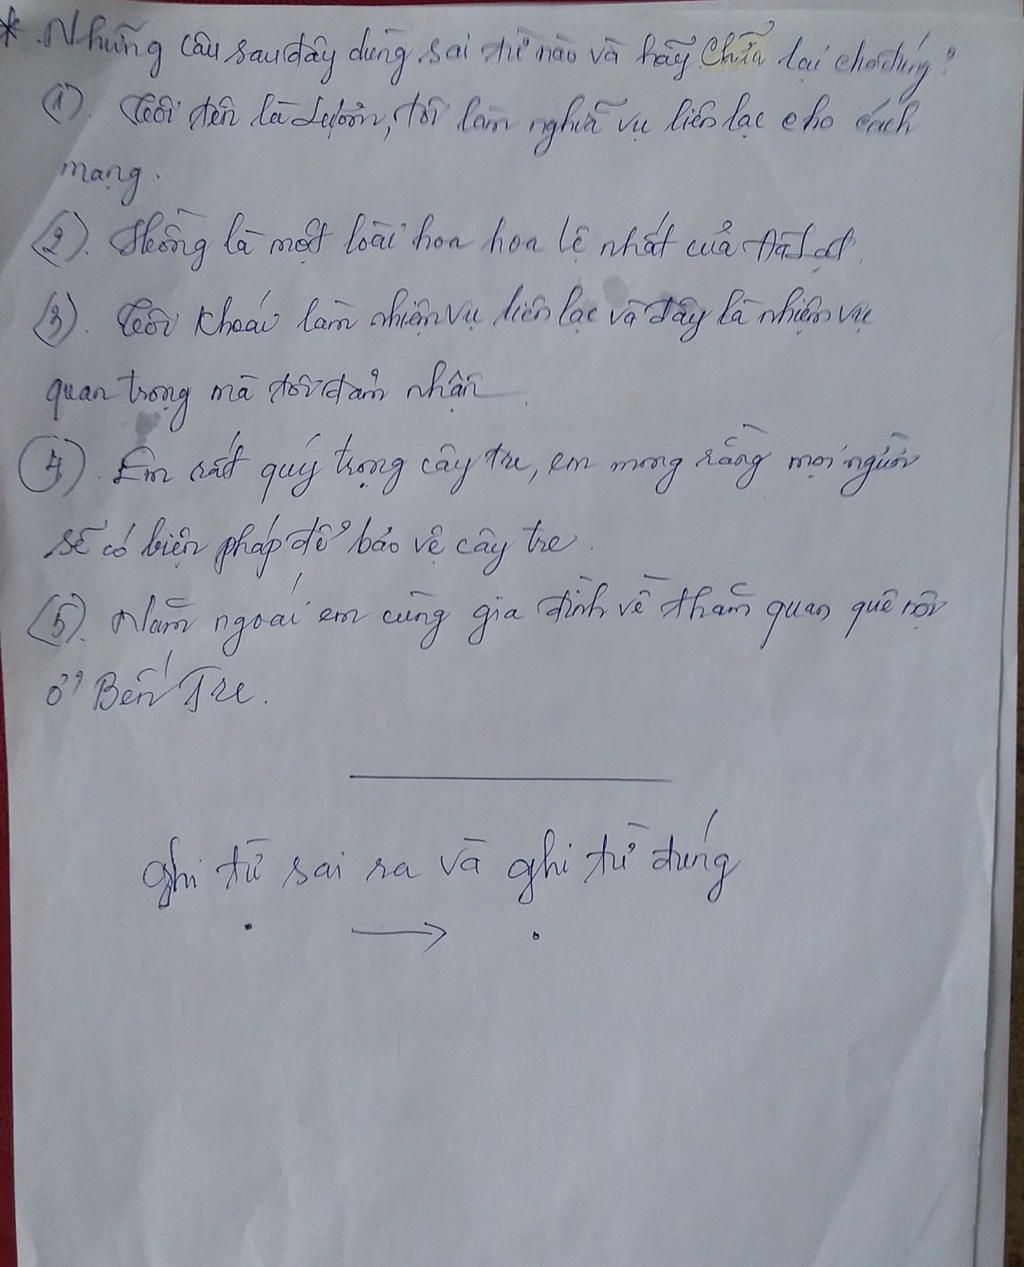 * Những câu sau đây dùng sai từ nào và hãy chữa lại cho đúng?
(1). Tôi tên là Lượm, tôi làm nghĩa vụ liên lạc cho cách
mạng.
(2). Hồng là một loài hoa hoa lệ nhất của Đà Lạt.
(3). Tôi khoái làm nhiệm vụ liên lạc và đây là nhiệm vụ
quan trọng mà tôi đảm nhận.
(4). Em rất quý trọng cây tre, em mong rằng mọi người
sẽ có biện pháp để bảo vệ cây tre.
(5). Năm ngoái em cùng gia đình về thăm quan quê nội
ở Bến Tre.
ghi từ sai ra và ghi từ đúng
. → .